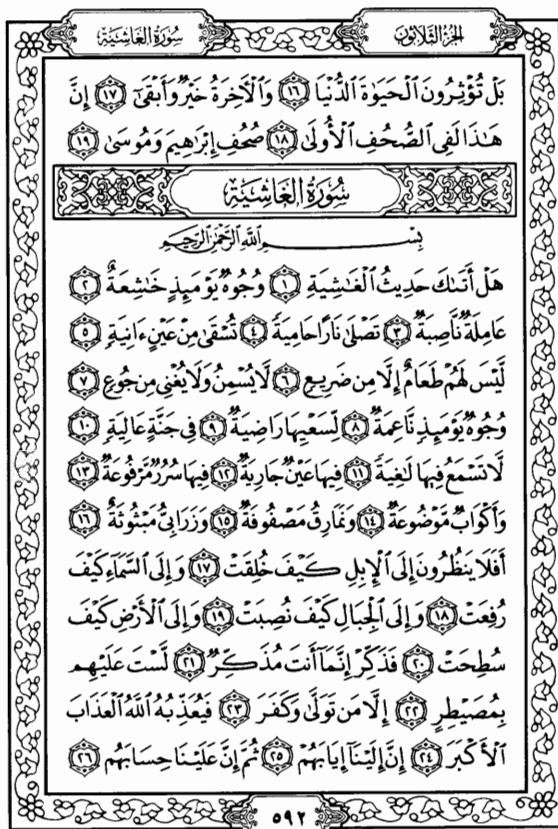 سُورَةُ الغَاشِيَةِ
الجُزْءُ الثَّلَاثُونَ
بَلْ تُؤْثِرُونَ ٱلْحَيَوٰةَ ٱلدُّنْيَا ١٦ وَٱلْأَخِرَةُ خَيْرٌ وَأَبْقَىٰٓ ١٧ إِنَّ
هَـٰذَا لَفِى ٱلصُّحُفِ ٱلْأُولَىٰ ١٨ صُحُفِ إِبْرَٰهِيمَ وَمُوسَىٰ ١٩
سُورَةُ الغَاشِيَةِ
بِسْمِ ٱللَّهِ ٱلرَّحْمَـٰنِ ٱلرَّحِيمِ
هَلْ أَتَىٰكَ حَدِيثُ ٱلْغَـٰشِيَةِ ١ وُجُوهٌ يَوْمَئِذٍ خَـٰشِعَةٌ ٢
عَامِلَةٌ نَّاصِبَةٌ ٣ تَصْلَىٰ نَارًا حَامِيَةً ٤ تُسْقَىٰ مِنْ عَيْنٍ ءَانِيَةٍ ٥
لَّيْسَ لَهُمْ طَعَامٌ إِلَّا مِن ضَرِيعٍ ٦ لَّا يُسْمِنُ وَلَا يُغْنِى مِن جُوعٍ ٧
وُجُوهٌ يَوْمَئِذٍ نَّاعِمَةٌ ٨ لِّسَعْيِهَا رَاضِيَةٌ ٩ فِى جَنَّةٍ عَالِيَةٍ ١٠
لَّا تَسْمَعُ فِيهَا لَـٰغِيَةً ١١ فِيهَا عَيْنٌ جَارِيَةٌ ١٢ فِيهَا سُرُرٌ مَّرْفُوعَةٌ ١٣
وَأَكْوَابٌ مَّوْضُوعَةٌ ١٤ وَنَمَارِقُ مَصْفُوفَةٌ ١٥ وَزَرَابِىُّ مَبْثُوثَةٌ ١٦
أَفَلَا يَنظُرُونَ إِلَى ٱلْإِبِلِ كَيْفَ خُلِقَتْ ١٧ وَإِلَى ٱلسَّمَآءِ كَيْفَ
رُفِعَتْ ١٨ وَإِلَى ٱلْجِبَالِ كَيْفَ نُصِبَتْ ١٩ وَإِلَى ٱلْأَرْضِ كَيْفَ
سُطِحَتْ ٢٠ فَذَكِّرْ إِنَّمَآ أَنتَ مُذَكِّرٌ ٢١ لَّسْتَ عَلَيْهِم
بِمُصَيْطِرٍ ٢٢ إِلَّا مَن تَوَلَّىٰ وَكَفَرَ ٢٣ فَيُعَذِّبُهُ ٱللَّهُ ٱلْعَذَابَ
ٱلْأَكْبَرَ ٢٤ إِنَّ إِلَيْنَآ إِيَابَهُمْ ٢٥ ثُمَّ إِنَّ عَلَيْنَا حِسَابَهُم ٢٦
٥٩٢